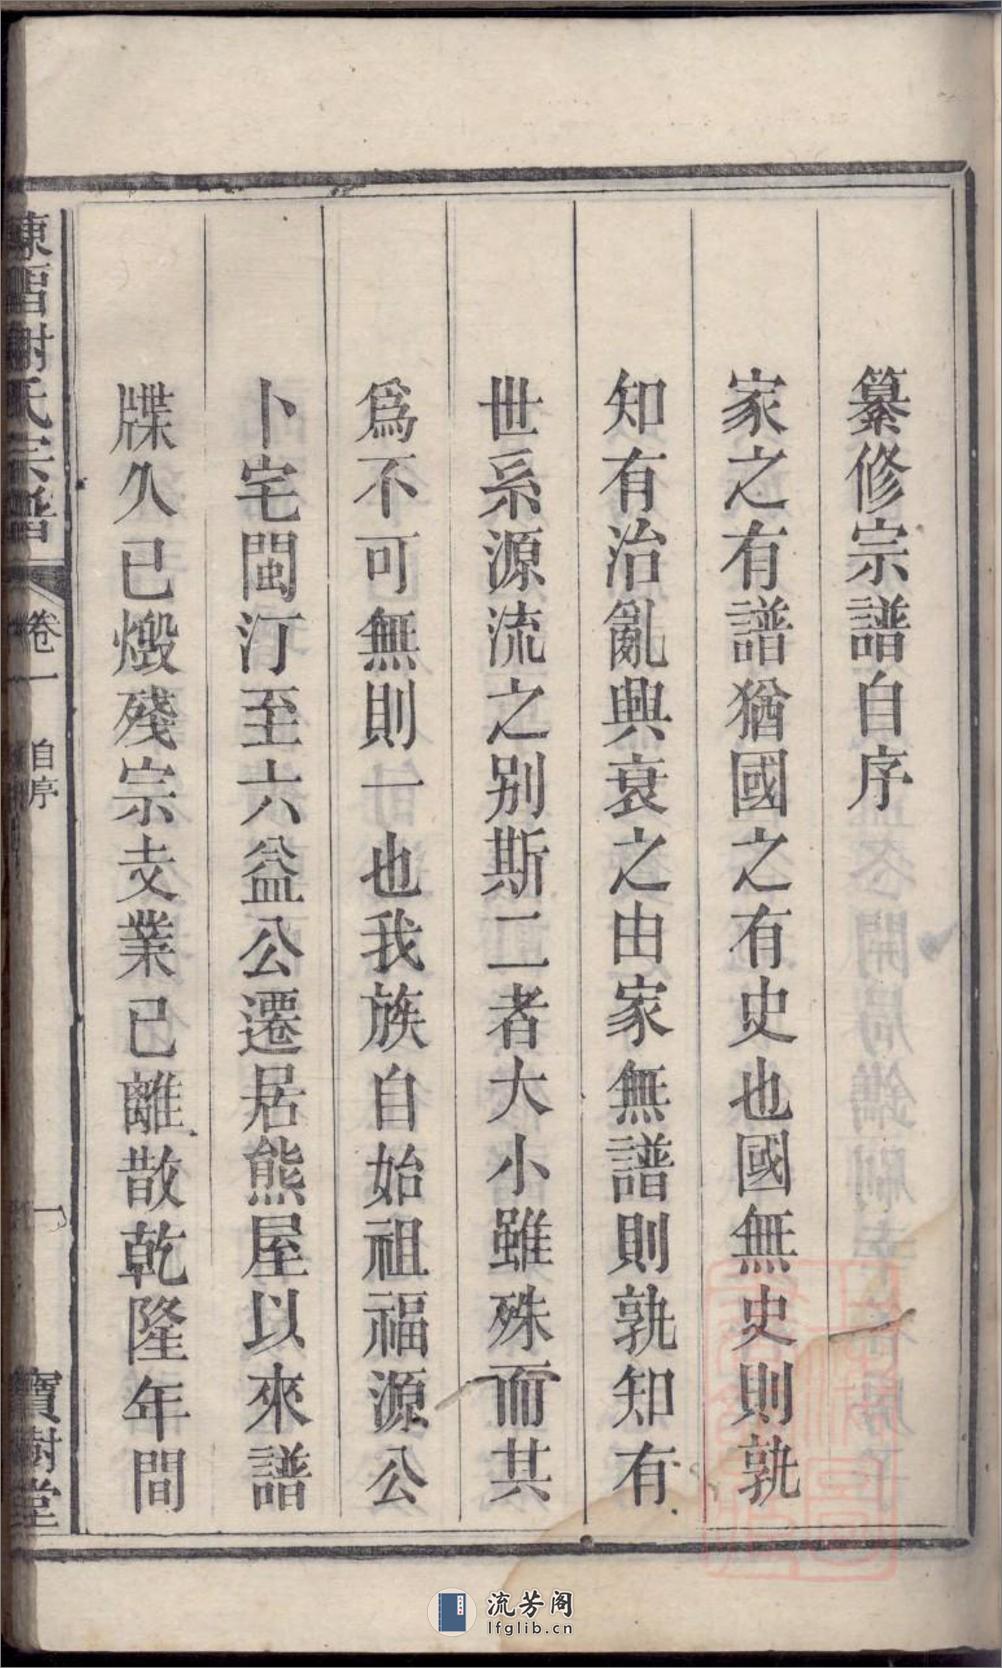 纂修宗譜自序
家之有譜猶國之有史也國無史則孰
知有治亂興衰之由家無譜則孰知有
世系源流之别斯二者大小雖殊而其
爲不可無則一也我族自始祖福源公
卜宅閩汀至六益公遷居熊屋以來譜
牒久已燬殘宗支業已離散乾隆年間
謝氏宗譜
卷一
自序
一
寶樹堂
流芳阁
lfglib.cn